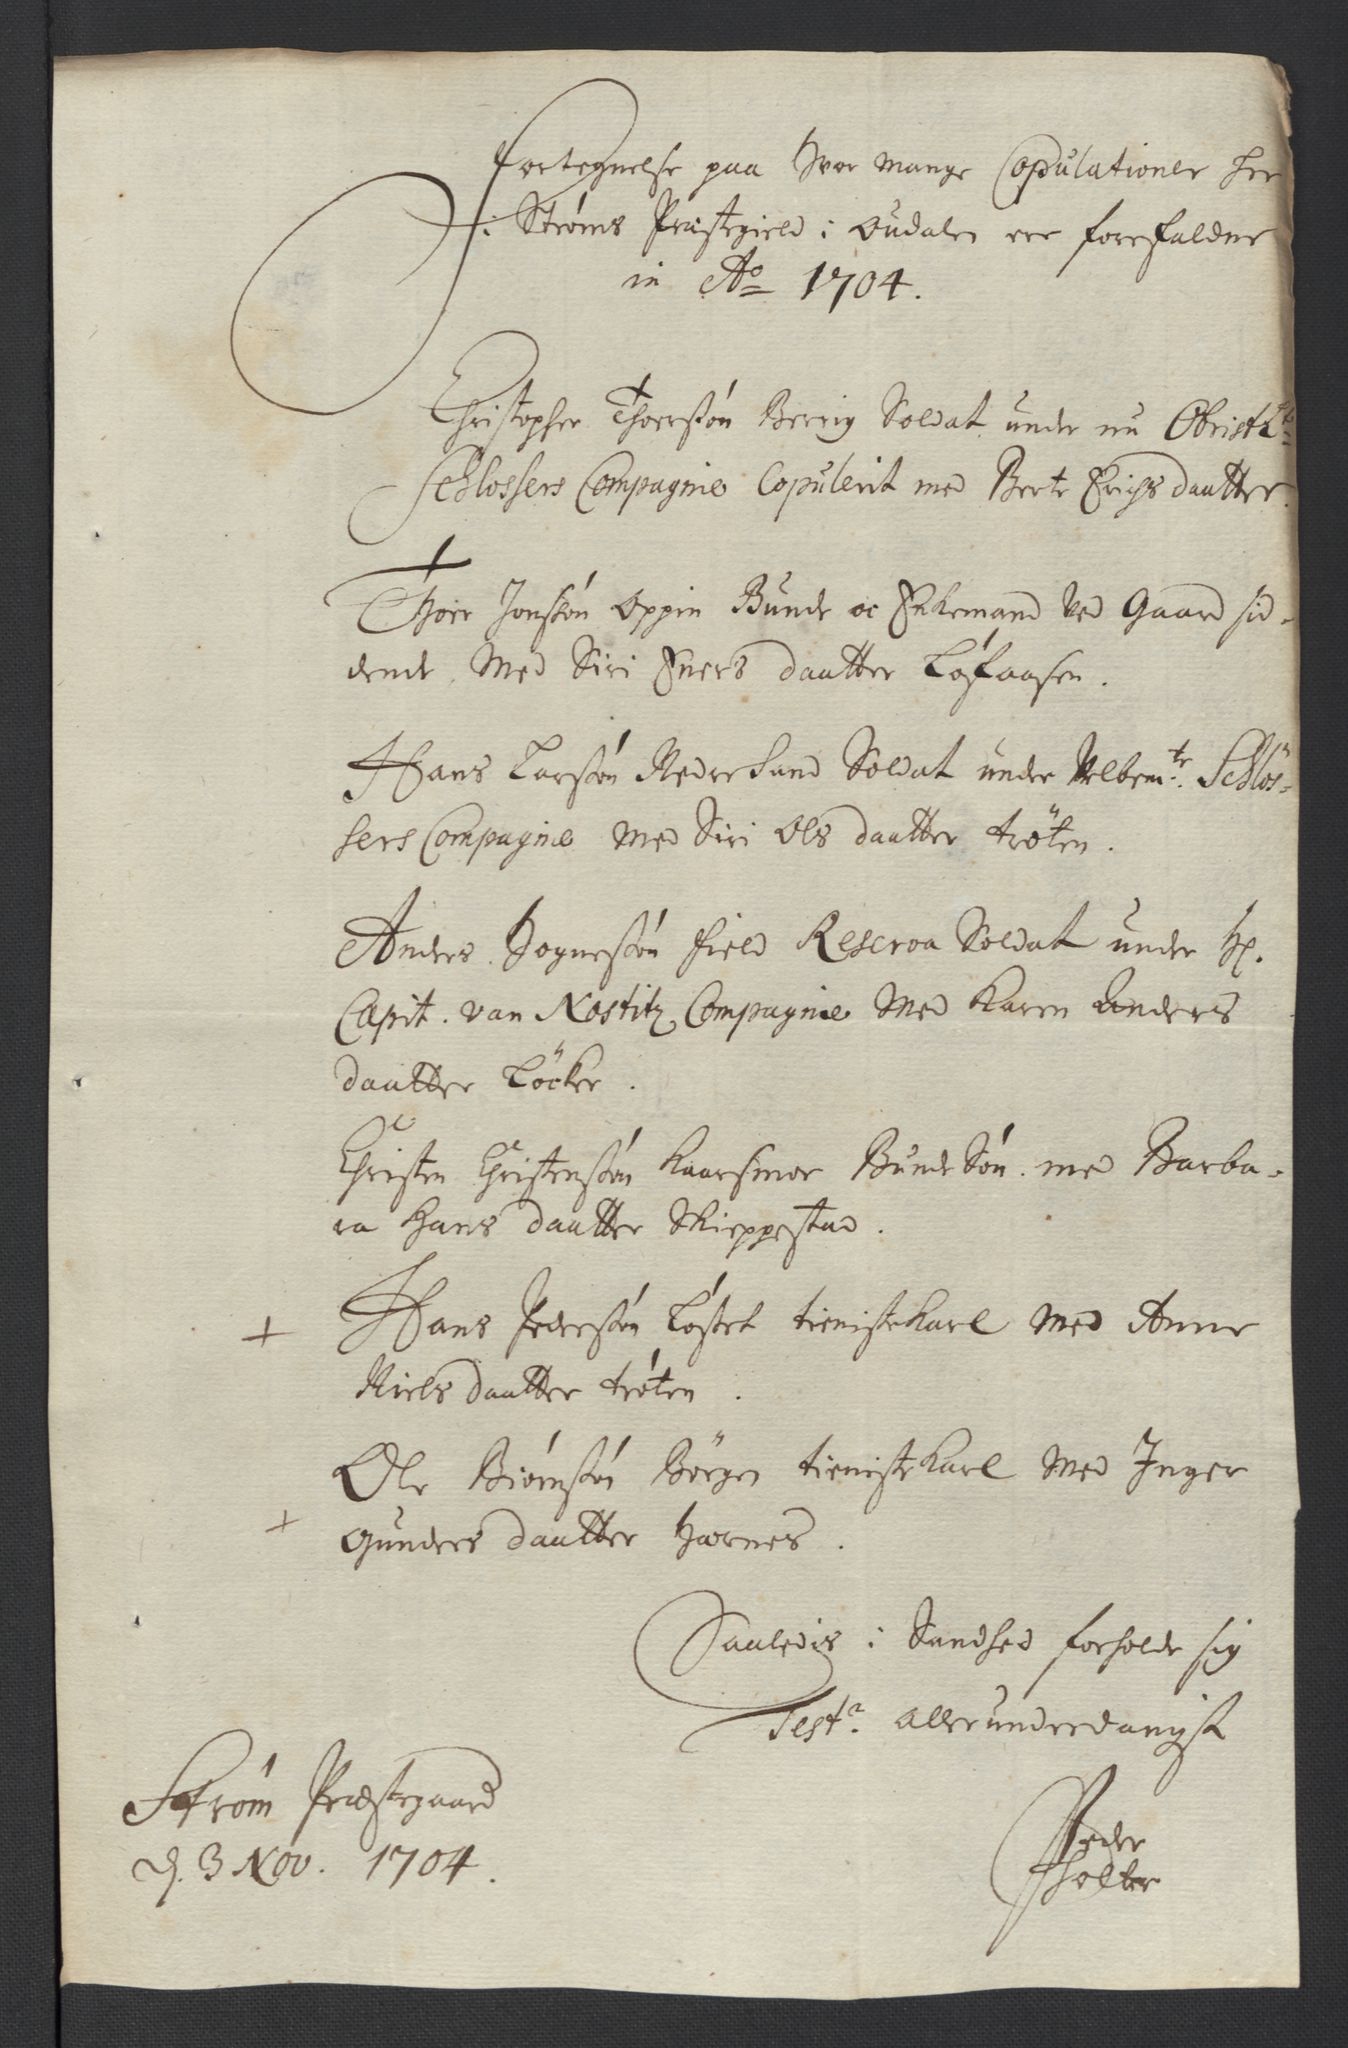 Fortegnelse paa hvor mange Copulationer her
i Strøms Præstegield i Oudalen ere forefaldne
in Ao 1704.
Christopher Thoersøn Berrig Soldat under nu Obrist Lt
Schlossers Compagnie Copulerit med Berte Erichs daatter
Thoer Jonssøn Oppin Bunde oc Enkemand ved Gaard sid-
dende, Med Siri Eners daatter Løfaasen.
Hans Larssøn Nedre Sand Soldat under Velbemte Schlös-
sers Compagnie Med Siri Ols daatter Trøten.
Anders Hognessøn Field Reserva Soldat under Hr.
Capit. van Nostitz Compagnie Med Karen Anders
daatter Löcker.
Christen Christenssøn Kaarsmoe Bunde Søn med Barba-
ra Hans daatter Skieppestad.
+ Hans Pederssøn Løstet tieniste Karl Med Anne
Niels daatter trøten.
Ole Biørnssøn Börgen tieniste Karl Med Inger
+ Gunders daatter Hornes.
Saaledis i Sandhed forholde sig
Test. allerunderdanigst
Strøm Præstegaard
d. 3 Nov. 1704.
Peder
Holter